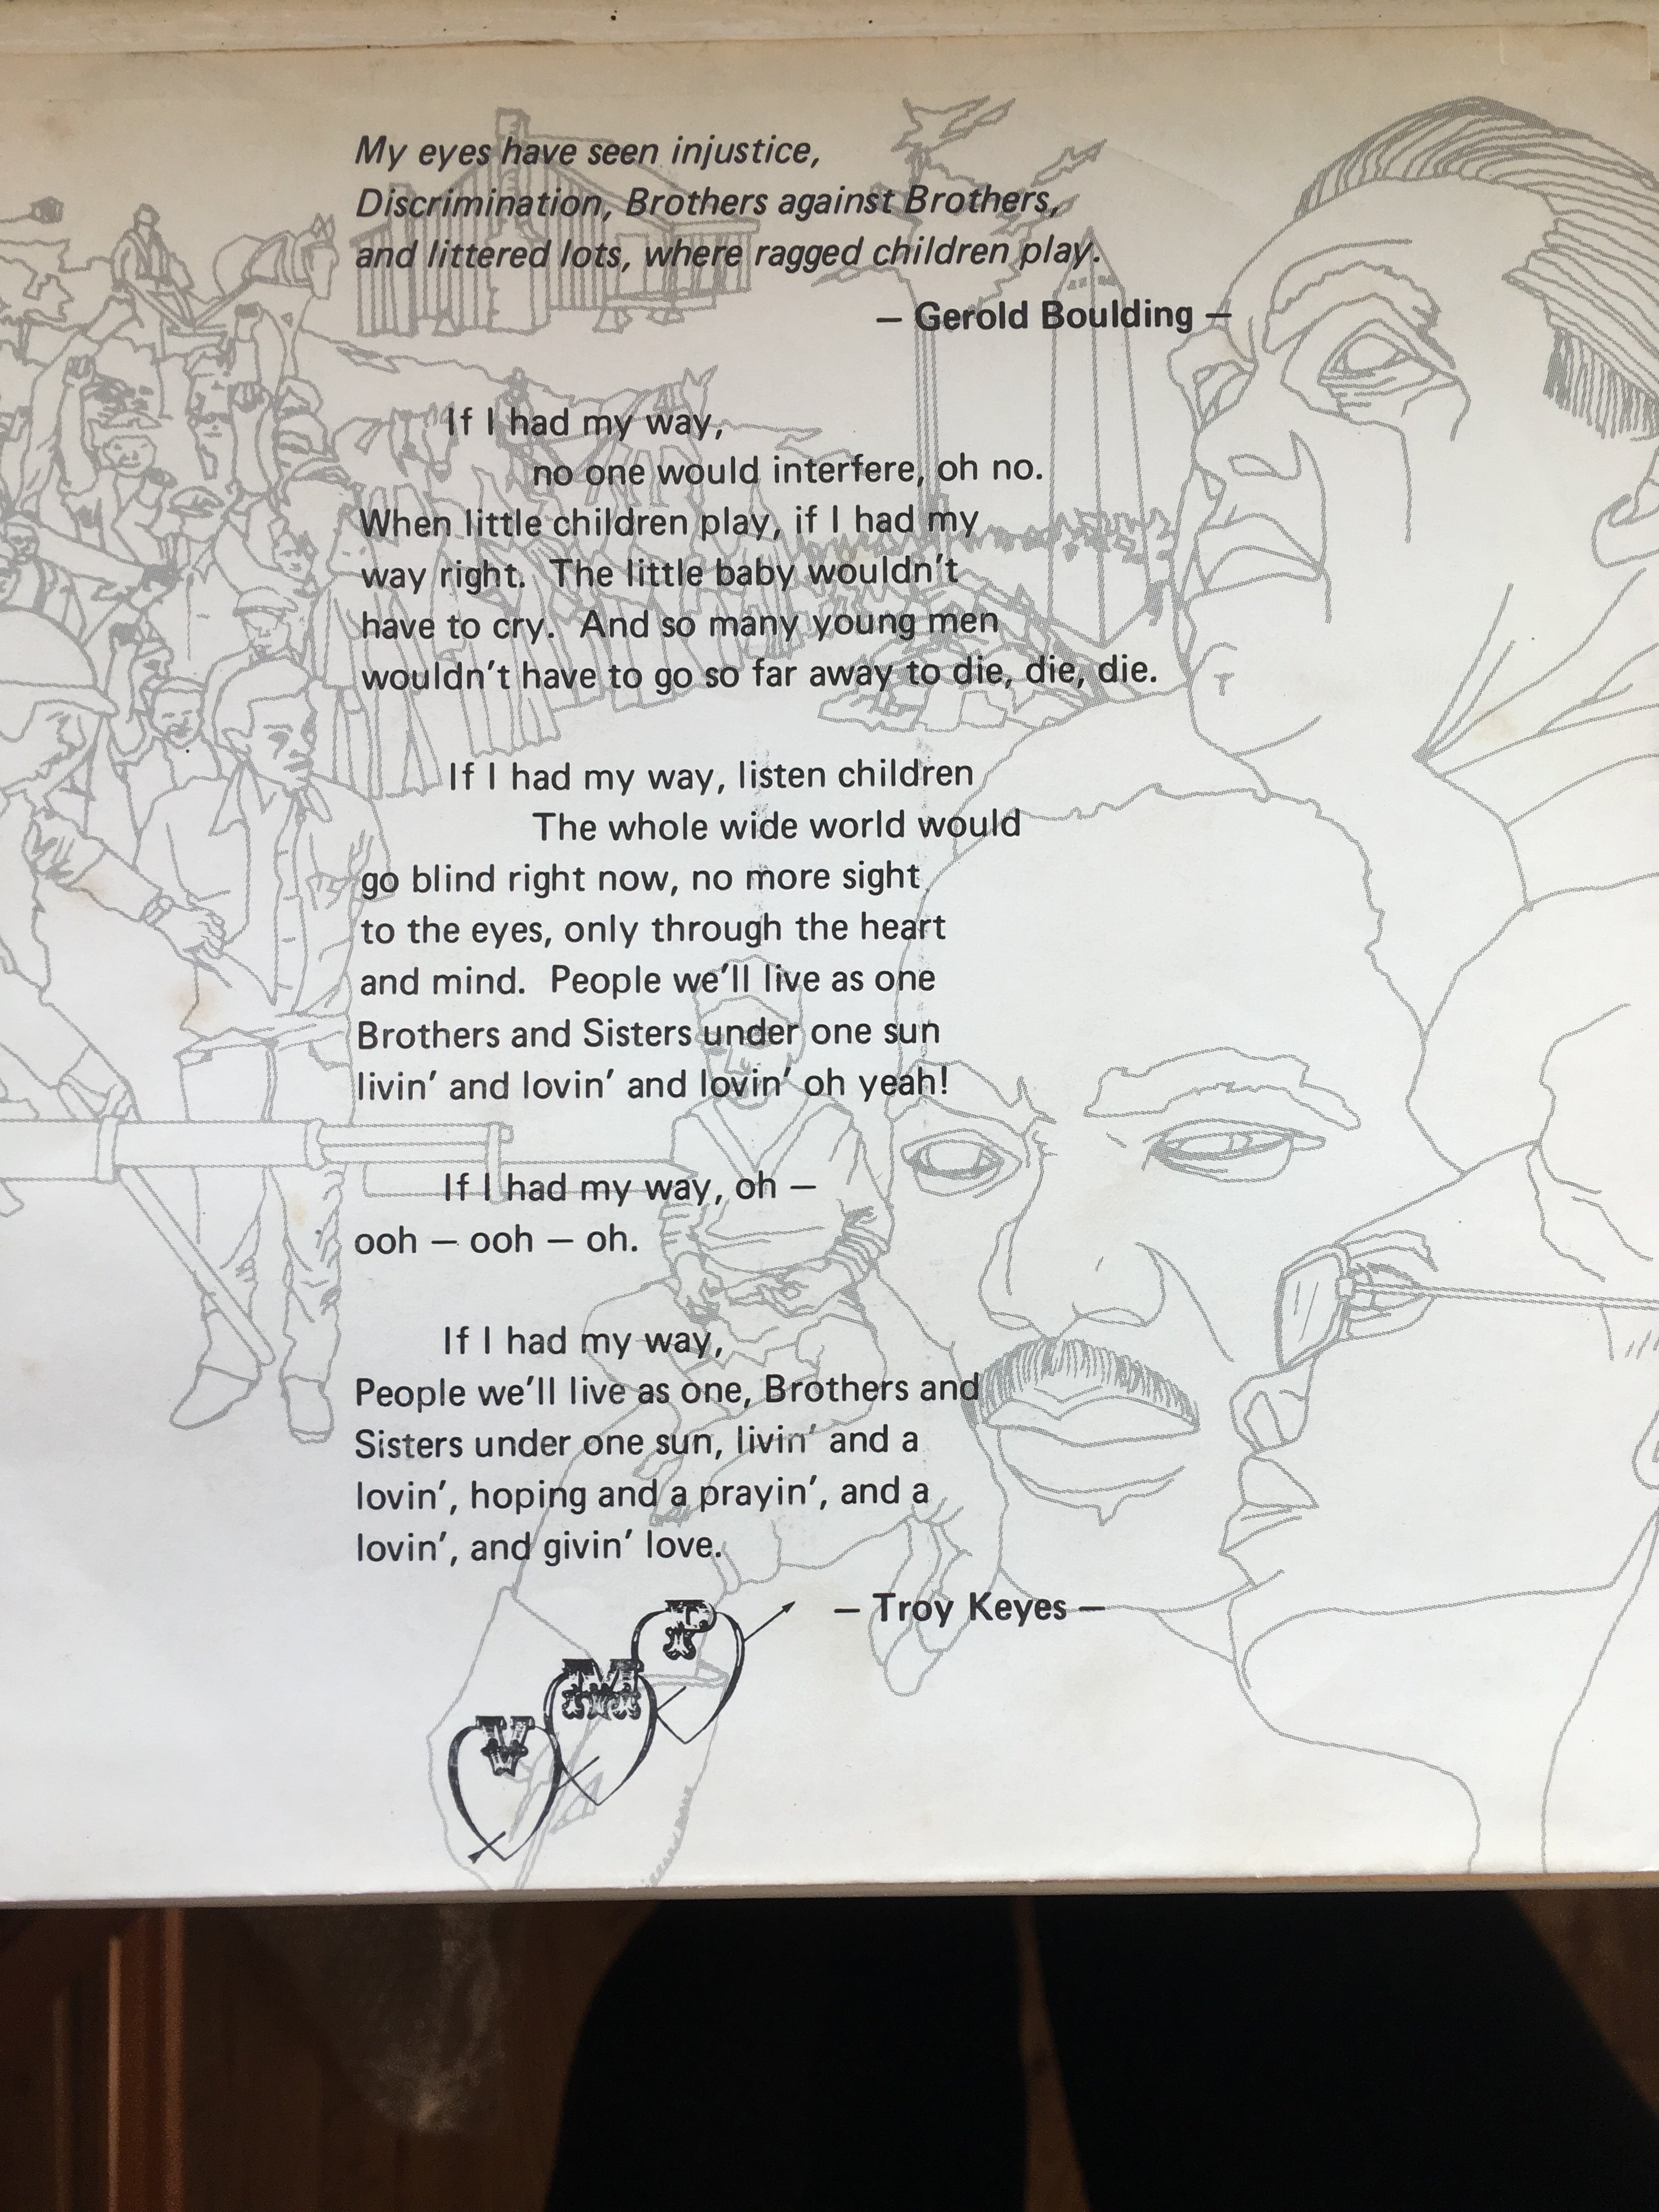 My eyes have seen injustice,
Discrimination, Brothers against Brothers,
and littered lots, where ragged children play.
— Gerold Boulding —
If I had my way,
no one would interfere, oh no.
When little children play, if I had my
way right. The little baby wouldn't
have to cry. And so many young men
wouldn't have to go so far away to die, die, die.
If I had my way, listen children
The whole wide world would
go blind right now, no more sight
to the eyes, only through the heart
and mind. People we'll live as one
Brothers and Sisters under one sun
livin' and lovin' and lovin' oh yeah!
If I had my way, oh —
ooh — ooh — oh.
If I had my way,
People we'll live as one, Brothers and
Sisters under one sun, livin' and a
lovin', hoping and a prayin', and a
lovin', and givin' love.
— Troy Keyes —
V M P